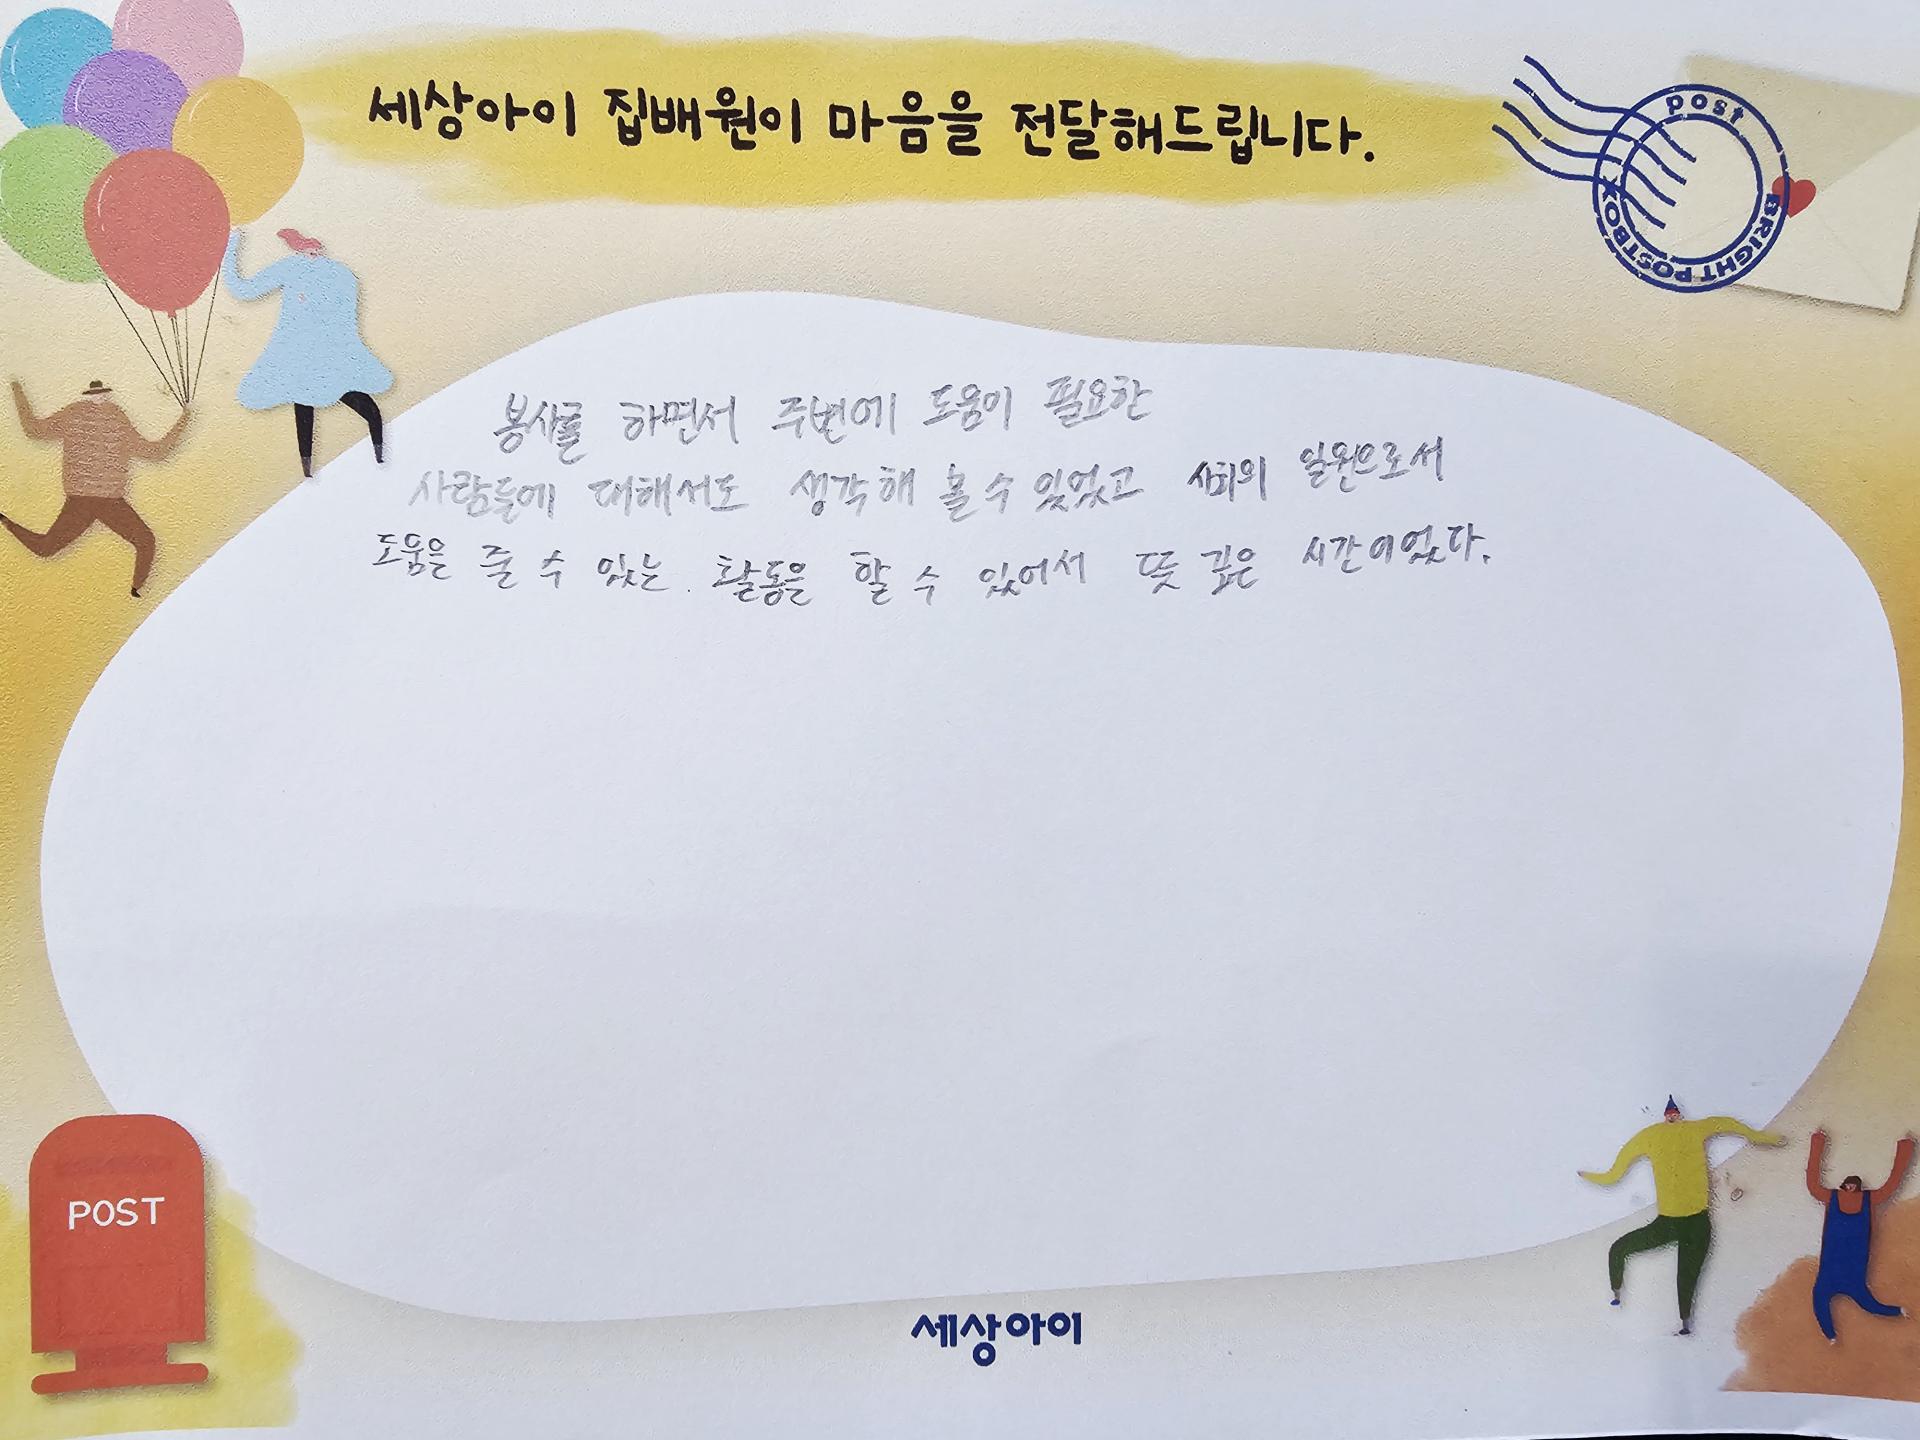 세상아이 집배원이 마음을 전달해드립니다.
post
BRIGHT POSTBOX
봉사를 하면서 주변에 도움이 필요한
사람들에 대해서도 생각해 볼 수 있었고 사회의 일원으로서
도움은 줄 수 있는 활동은 할 수 있어서 뜻 깊은 시간이었다.
POST
세상아이